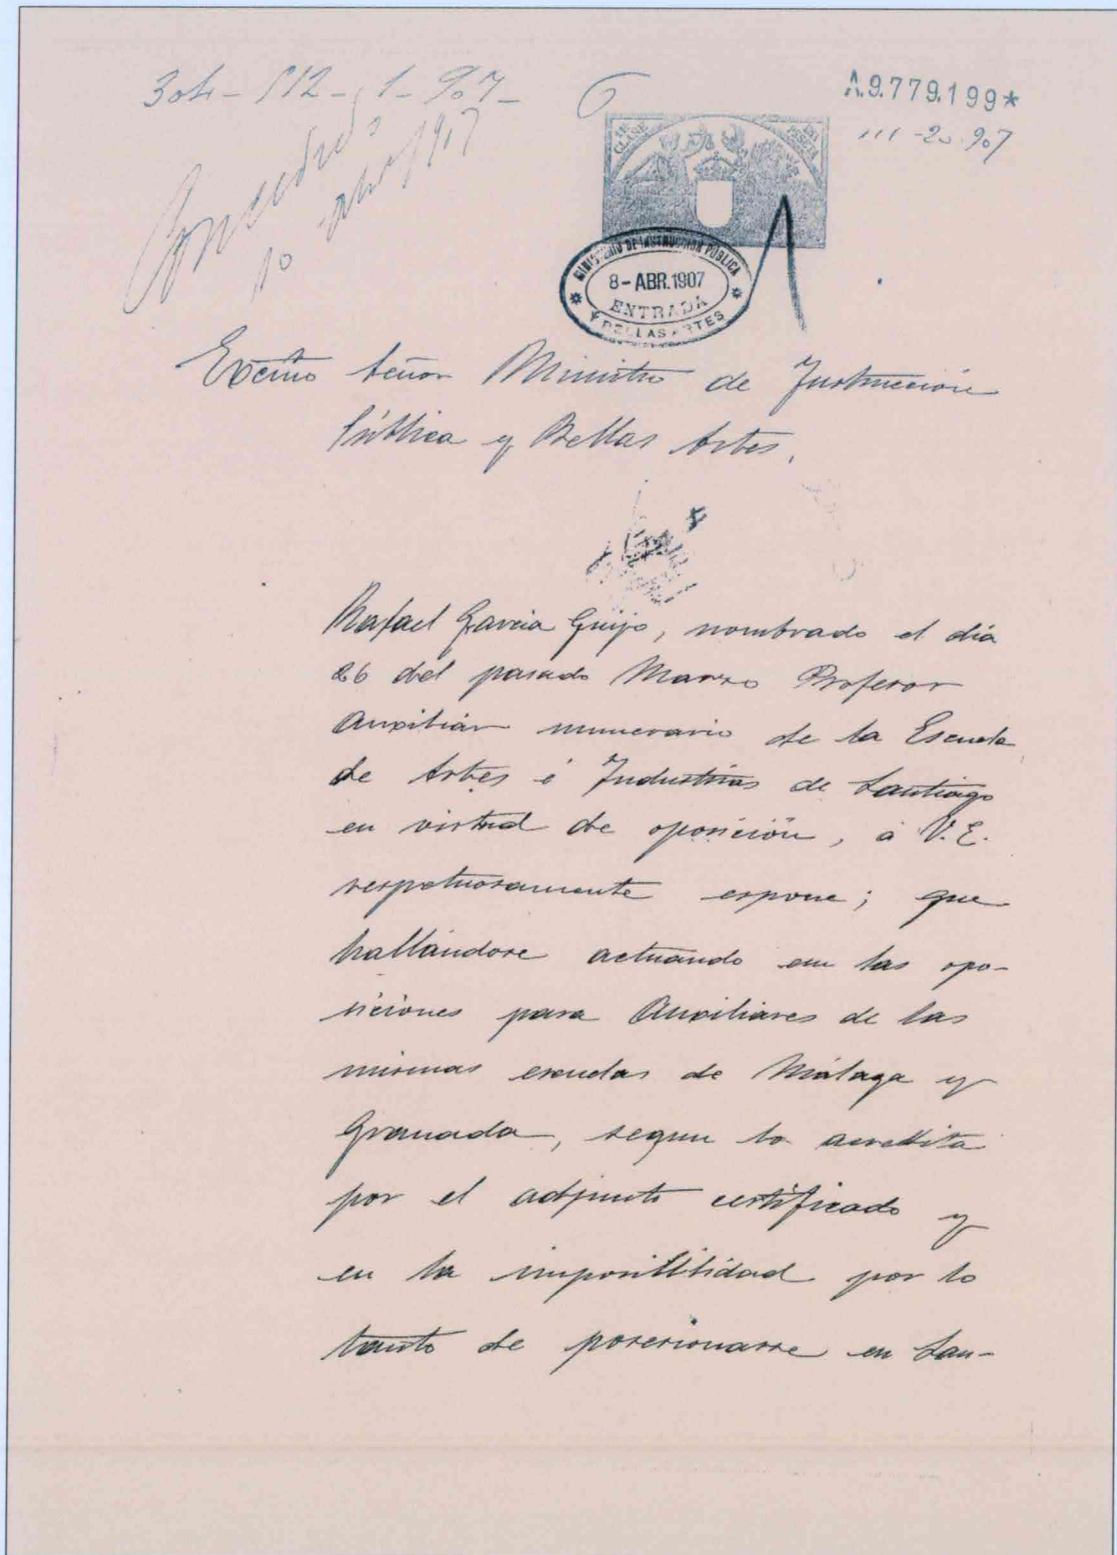 304-112-1-907-
6
A.9.779.199*
111-20-907
Concedido
10 abril/1907
11ª CLASE
UNA PESETA
MINISTERIO DE INSTRUCCIÓN PÚBLICA
8-ABR.1907
ENTRADA
Y BELLAS ARTES
Excmo Señor Ministro de Instrucción
Pública y Bellas Artes.
Rafael Garcia Guijo, nombrado el dia
26 del pasado Marzo Profesor
Auxiliar numerario de la Escuela
de Artes é Industrias de Santiago
en virtud de oposición, á V.E.
respetuosamente espone; que
hallándose actuando en las opo-
siciones para Auxiliares de las
mismas escuelas de Málaga y
Granada, segun lo acredita
por el adjunto certificado y
en la imposibilidad por lo
tanto de posesionarse en San-